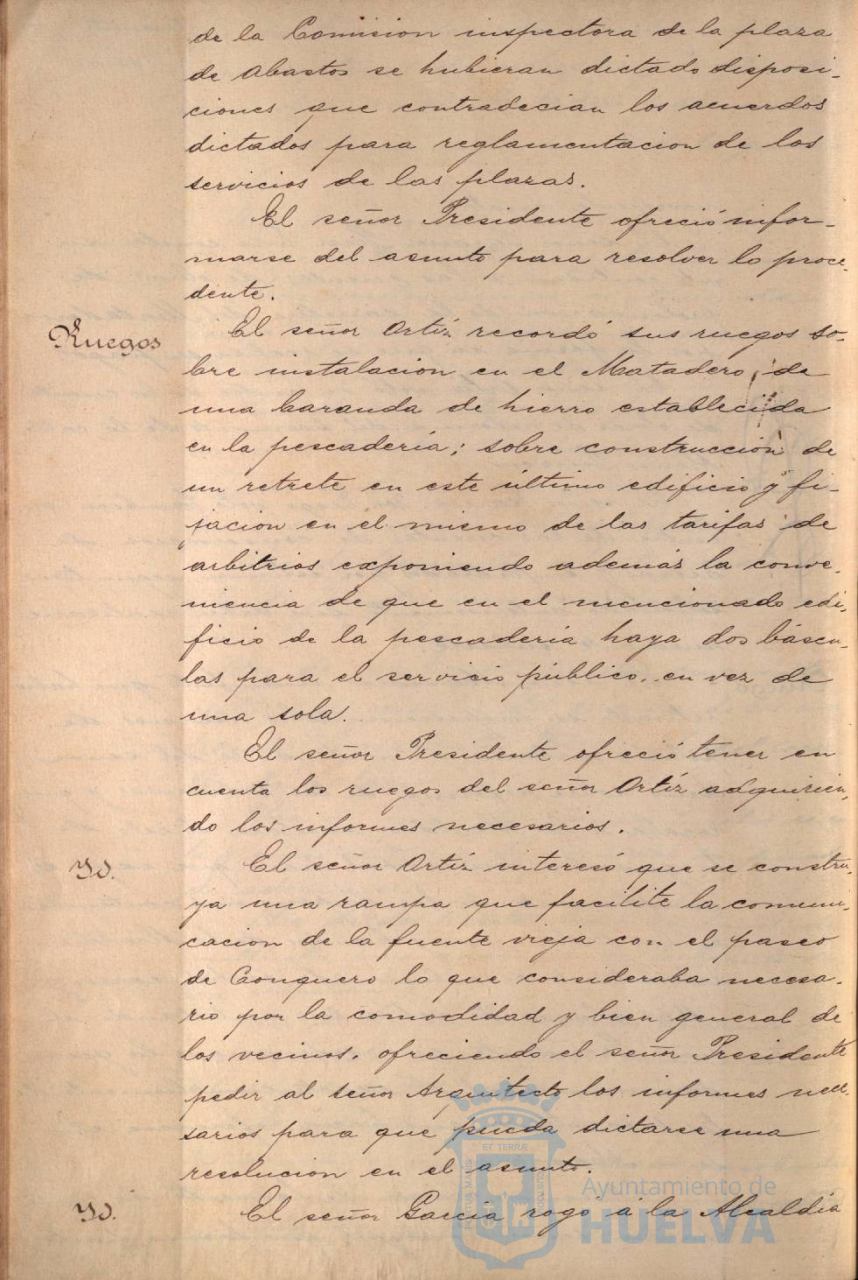 de la Comision inspectora de la plaza
de abastos se hubieran dictado disposi-
ciones que contradecian los acuerdos
dictados para reglamentacion de los
servicios de las plazas.
El señor Presidente ofreció infor-
marse del asunto para resolver lo proce-
dente.
Ruegos
El señor Ortíz recordó sus ruegos so-
bre instalacion en el Matadero, de
una baranda de hierro establecida
en la pescadería; sobre construcción de
un retrete en este último edificio y fi-
jacion en el mismo de las tarifas de
arbitrios exponiendo además la conve-
niencia de que en el mencionado edi-
ficio de la pescadería haya dos báscu-
las para el servicio público, en vez de
una sola.
El señor Presidente ofreció tener en
cuenta los ruegos del señor Ortíz adquirien-
do los informes necesarios.
Yd.
El señor Ortíz interesó que se constru-
ya una rampa que facilite la comuni-
cacion de la fuente vieja con el paseo
de Conquero lo que consideraba necesa-
rio por la comodidad y bien general de
los vecinos, ofreciendo el señor Presidente
pedir al señor Arquitecto los informes nece-
sarios para que pueda dictarse una
resolucion en el asunto.
Yd.
El señor García rogó á la Alcaldía
ET TERRÆ
Ayuntamiento de
HUELVA